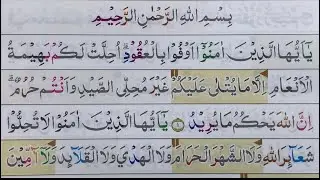 بِسْمِ اللهِ الرَّحْمٰنِ الرَّحِيْمِ
يٰۤاَيُّهَا الَّذِيْنَ اٰمَنُوْۤا اَوْفُوْا بِالْعُقُوْدِ ؕ اُحِلَّتْ لَكُمْ بَهِيْمَةُ
الْاَنْعَامِ اِلَّا مَا يُتْلٰى عَلَيْكُمْ غَيْرَ مُحِلِّى الصَّيْدِ وَاَنْتُمْ حُرُمٌ ؕ
اِنَّ اللهَ يَحْكُمُ مَا يُرِيْدُ ۝۱ يٰۤاَيُّهَا الَّذِيْنَ اٰمَنُوْا لَا تُحِلُّوْا
شَعَآئِرَ اللهِ وَلَا الشَّهْرَ الْحَرَامَ وَلَا الْهَدْىَ وَلَا الْقَلَآئِدَ وَلَاۤ آٰمِّيْنَ